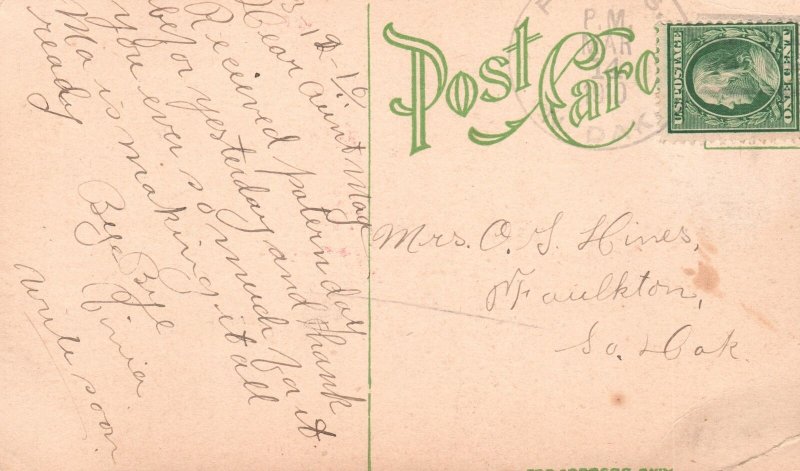 3-12-10
Dear Aunt Mag.
Recieved patern day
befor yesterday and thank
you ever so much for it.
Ma is making it all
ready
Bye Bye
Write soon.
Post Card
P.M.
MAR
14
DAK
U.S. POSTAGE
ONE CENT
Mrs. O. S. Hines,
Faulkton,
So. Dak.